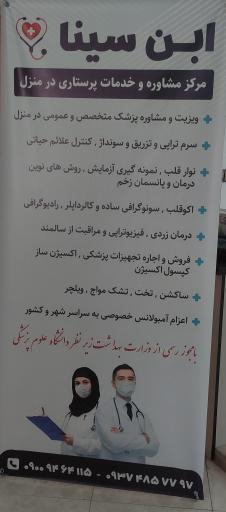 ابن سینا
مرکز مشاوره و خدمات پرستاری در منزل
ویزیت و مشاوره پزشک متخصص و عمومی در منزل
سرم تراپی و تزریق و سونداژ , کنترل علائم حیاتی
نوار قلب , نمونه گیری آزمایش , روش های نوین
درمان و پانسمان زخم
اکوقلب , سونوگرافی ساده و کالرداپلر , رادیوگرافی
درمان زردی , فیزیوتراپی و مراقبت از سالمند
فروش و اجاره تجهیزات پزشکی , اکسیژن ساز
کپسول اکسیژن
ساکشن , تخت , تشک مواج , ویلچر
اعزام آمبولانس خصوصی به سراسر شهر و کشور
بامجوز رسمی از وزارت بهداشت زیر نظر دانشگاه علوم پزشکی
۰۹۰۰ ۹۴ ۶۴ ۱۱۵ - ۰۹۳۷ ۴۸۵ ۷۷ ۹۷